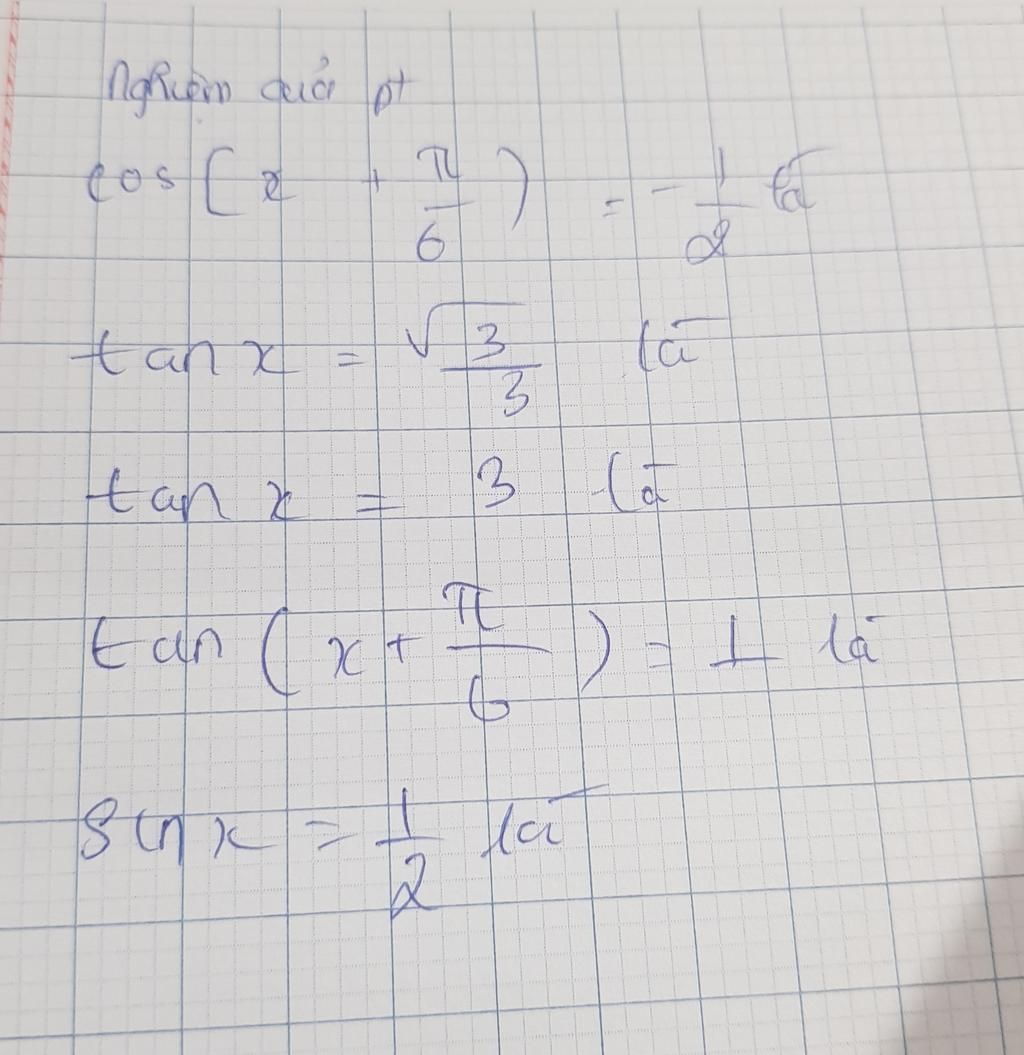 Nghiệm của pt
cos(x + π/6) = -1/2 là
tan x = √3/3 là
tan x = 3 là
tan(x + π/6) = 1 là
sin x = 1/2 là